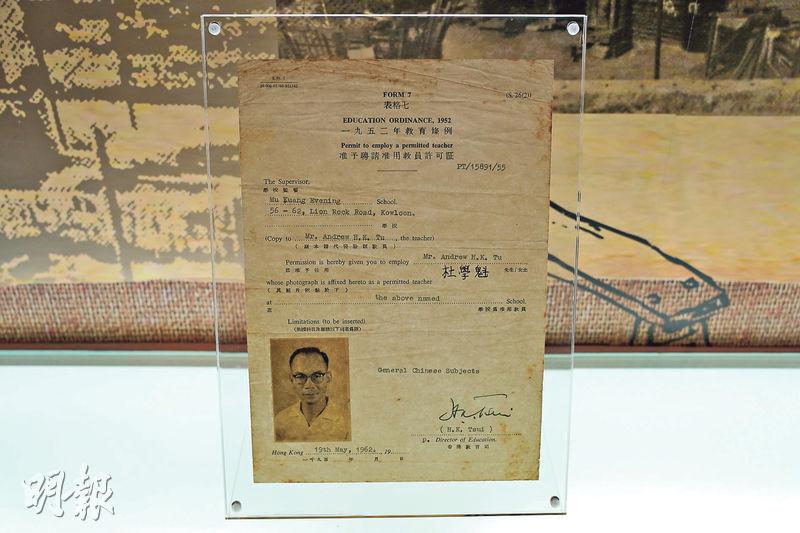 FORM 7
(S. 26(2))
表格七
EDUCATION ORDINANCE, 1952
一九五二年教育條例
Permit to employ a permitted teacher
准予聘請准用教員許可証
PT/15891/55
The Supervisor,
學校監督
Mu Kuang Evening School.
56 - 62, Lion Rock Road, Kowloon.
學校
(Copy to Mr. Andrew H.K. Tu, the teacher)
Permission is hereby given you to employ Mr. Andrew H.K. Tu
茲准予任用 杜學魁 先生/女士
whose photograph is affixed hereto as a permitted teacher
(其照片附黏於下)
at the above named School.
在
Limitations (to be inserted)
General Chinese Subjects
(H.K. Tsui)
D. Director of Education.
Hong Kong 19th May, 1962. 19
一千九百 年 月 日
明報